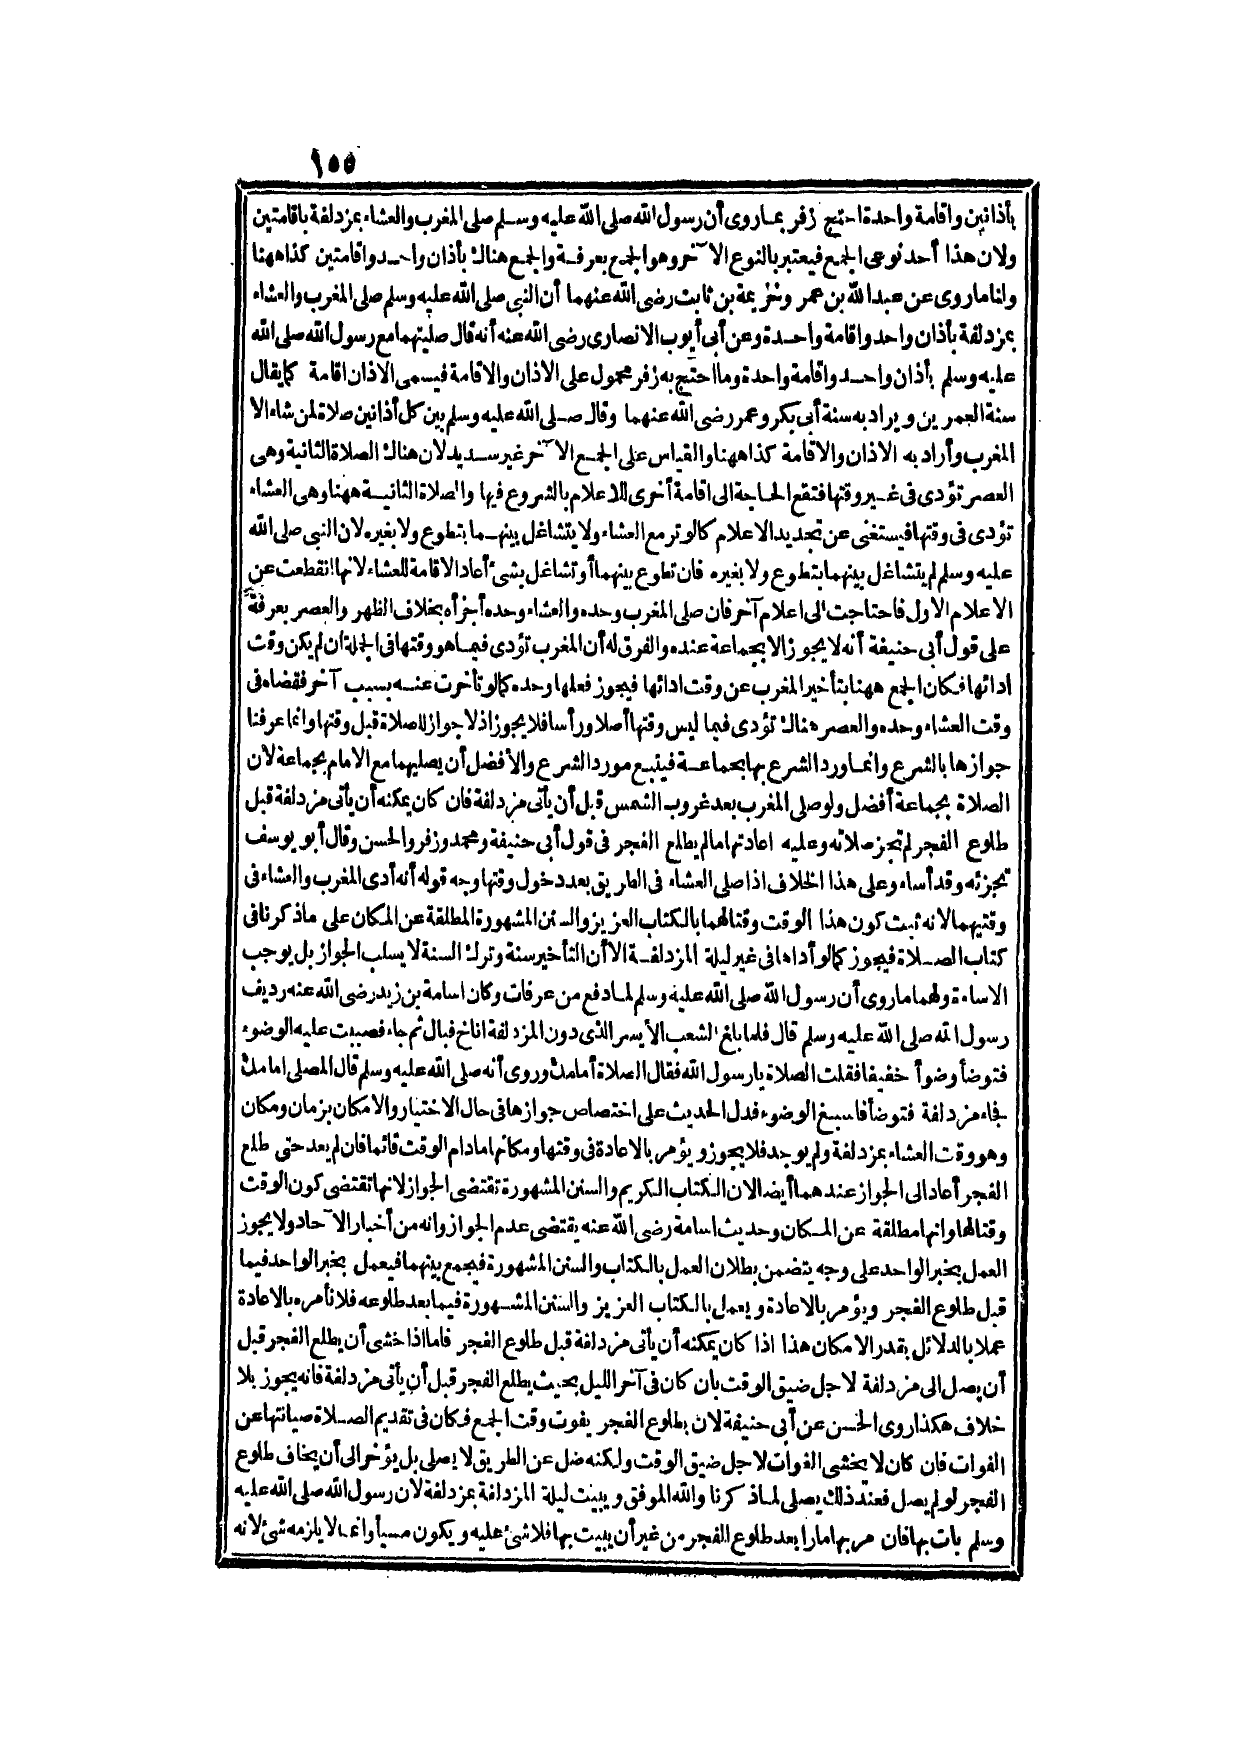 ١٥٥
بأذانين واقامة واحدة احتج زفر بما روى أن رسول الله صلى الله عليه وسلم صلى المغرب والعشاء بمزدلفة باقامتين
ولان هذا أحد نوعى الجمع فيعتبر بالنوع الآخر وهو الجمع بعرفة والجمع هناك بأذان واحد واقامتين كذا ههنا
ولنا ما روى عن عبد الله بن عمر وخزيمة بن ثابت رضى الله عنهما أن النبى صلى الله عليه وسلم صلى المغرب والعشاء
بمزدلفة بأذان واحد واقامة واحدة وعن أبى أيوب الانصارى رضى الله عنه أنه قال صليتهما مع رسول الله صلى الله
عليه وسلم بأذان واحد واقامة واحدة وما احتج به زفر محمول على الاذان والاقامة فيسمى الاذان اقامة كما يقال
سنة العمرين ويراد به سنة أبى بكر وعمر رضى الله عنهما وقال صلى الله عليه وسلم بين كل أذانين صلاة لمن شاء الا
المغرب وأراد به الاذان والاقامة كذا ههنا والقياس على الجمع الآخر غير سديد لان هناك الصلاة الثانية وهى
العصر تؤدى فى غير وقتها فتقع الحاجة الى اقامة أخرى للاعلام بالشروع فيها والصلاة الثانية ههنا وهى العشاء
تؤدى فى وقتها فيستغنى عن تجديد الاعلام كالوتر مع العشاء ولا يتشاغل بينهما بتطوع ولا بغيره لان النبى صلى الله
عليه وسلم لم يتشاغل بينهما بتطوع ولا بغيره فان تطوع بينهما أو تشاغل بشئ أعاد الاقامة للعشاء لانها انقطعت عن
الاعلام الاول فاحتاجت الى اعلام آخر فان صلى المغرب وحده والعشاء وحده أجزأه بخلاف الظهر والعصر بعرفة
على قول أبى حنيفة أنه لا يجوز الا بجماعة عنده والفرق له أن المغرب تؤدى فيما هو وقتها فى الجملة ان لم يكن وقت
ادائها فكان الجمع ههنا بتأخير المغرب عن وقت ادائها فيجوز فعلها وحده كما لو تأخرت عنه بسبب آخر فقضاه فى
وقت العشاء وحده والعصر هناك تؤدى فيما ليس وقتها أصلا ورأسا فلا يجوز اذ لا جواز للصلاة قبل وقتها وانما عرفنا
جوازها بالشرع وانما ورد الشرع بها بجماعة فيتبع مورد الشرع والأفضل أن يصليهما مع الامام بجماعة لان
الصلاة بجماعة أفضل ولو صلى المغرب بعد غروب الشمس قبل أن يأتى مزدلفة فان كان يمكنه أن يأتى مزدلفة قبل
طلوع الفجر لم تجز صلاته وعليه اعادتها ما لم يطلع الفجر فى قول أبى حنيفة ومحمد وزفر والحسن وقال أبو يوسف
تجزئه وقد أساء وعلى هذا الخلاف اذا صلى العشاء فى الطريق بعد دخول وقتها وجه قوله أنه أدى المغرب والعشاء فى
وقتيهما لانه ثبت كون هذا الوقت وقتا لهما بالكتاب العزيز والسنن المشهورة المطلقة عن المكان على ما ذكرنا فى
كتاب الصلاة فيجوز كما لو أداها فى غير ليلة المزدلفة الا أن التأخير سنة وترك السنة لا يسلب الجواز بل يوجب
الاساءة ولهما ما روى أن رسول الله صلى الله عليه وسلم لما دفع من عرفات وكان اسامة بن زيد رضى الله عنه رديف
رسول الله صلى الله عليه وسلم قال فلما بلغ الشعب الأيسر الذى دون المزدلفة اناخ فبال ثم جاء فصببت عليه الوضوء
فتوضأ وضوأ خفيفا فقلت الصلاة يا رسول الله فقال الصلاة أمامك وروى أنه صلى الله عليه وسلم قال المصلى امامك
فجاء مزدلفة فتوضأ فاسبغ الوضوء فدل الحديث على اختصاص جوازها فى حال الاختيار والامكان بزمان ومكان
وهو وقت العشاء بمزدلفة ولم يوجد فلا يجوز ويؤمر بالاعادة فى وقتها ومكانها ما دام الوقت قائما فان لم يعد حتى طلع
الفجر أعاد الى الجواز عندهما أيضا لان الكتاب الكريم والسنن المشهورة تقتضى الجواز لانها تقتضى كون الوقت
وقتا لها وانها مطلقة عن المكان وحديث اسامة رضى الله عنه يقتضى عدم الجواز وانه من أخبار الآحاد ولا يجوز
العمل بخبر الواحد على وجه يتضمن بطلان العمل بالكتاب والسنن المشهورة فيجمع بينهما فيعمل بخبر الواحد فيما
قبل طلوع الفجر ويؤمر بالاعادة ويعمل بالكتاب العزيز والسنن المشهورة فيما بعد طلوعه فلا نأمره بالاعادة
عملا بالدلائل بقدر الامكان هذا اذا كان يمكنه أن يأتى مزدلفة قبل طلوع الفجر فاما اذا خشى أن يطلع الفجر قبل
أن يصل الى مزدلفة لاجل ضيق الوقت بان كان فى آخر الليل بحيث يطلع الفجر قبل أن يأتى مزدلفة فانه يجوز بلا
خلاف هكذا روى الحسن عن أبى حنيفة لان بطلوع الفجر يفوت وقت الجمع فكان فى تقديم الصلاة صيانتها عن
الفوات فان كان لا يخشى الفوات لاجل ضيق الوقت ولكنه ضل عن الطريق لا يصلى بل يؤخر الى أن يخاف طلوع
الفجر لو لم يصل فعند ذلك يصلى لما ذكرنا والله الموفق ويبيت ليلة المزدلفة بمزدلفة لان رسول الله صلى الله عليه
وسلم بات بها فان مر بها مارا بعد طلوع الفجر من غير أن يبيت بها فلا شئ عليه ويكون مسيأ وانما لا يلزمه شئ لانه